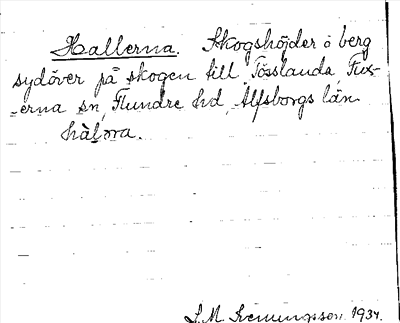 Hallerna. Skogshöjder o berg
sydöver på skogen till Tösslanda, Fux-
-erna sn, Flundre hd, Älfsborgs län.
hàlṇa.
S. M. 1934.